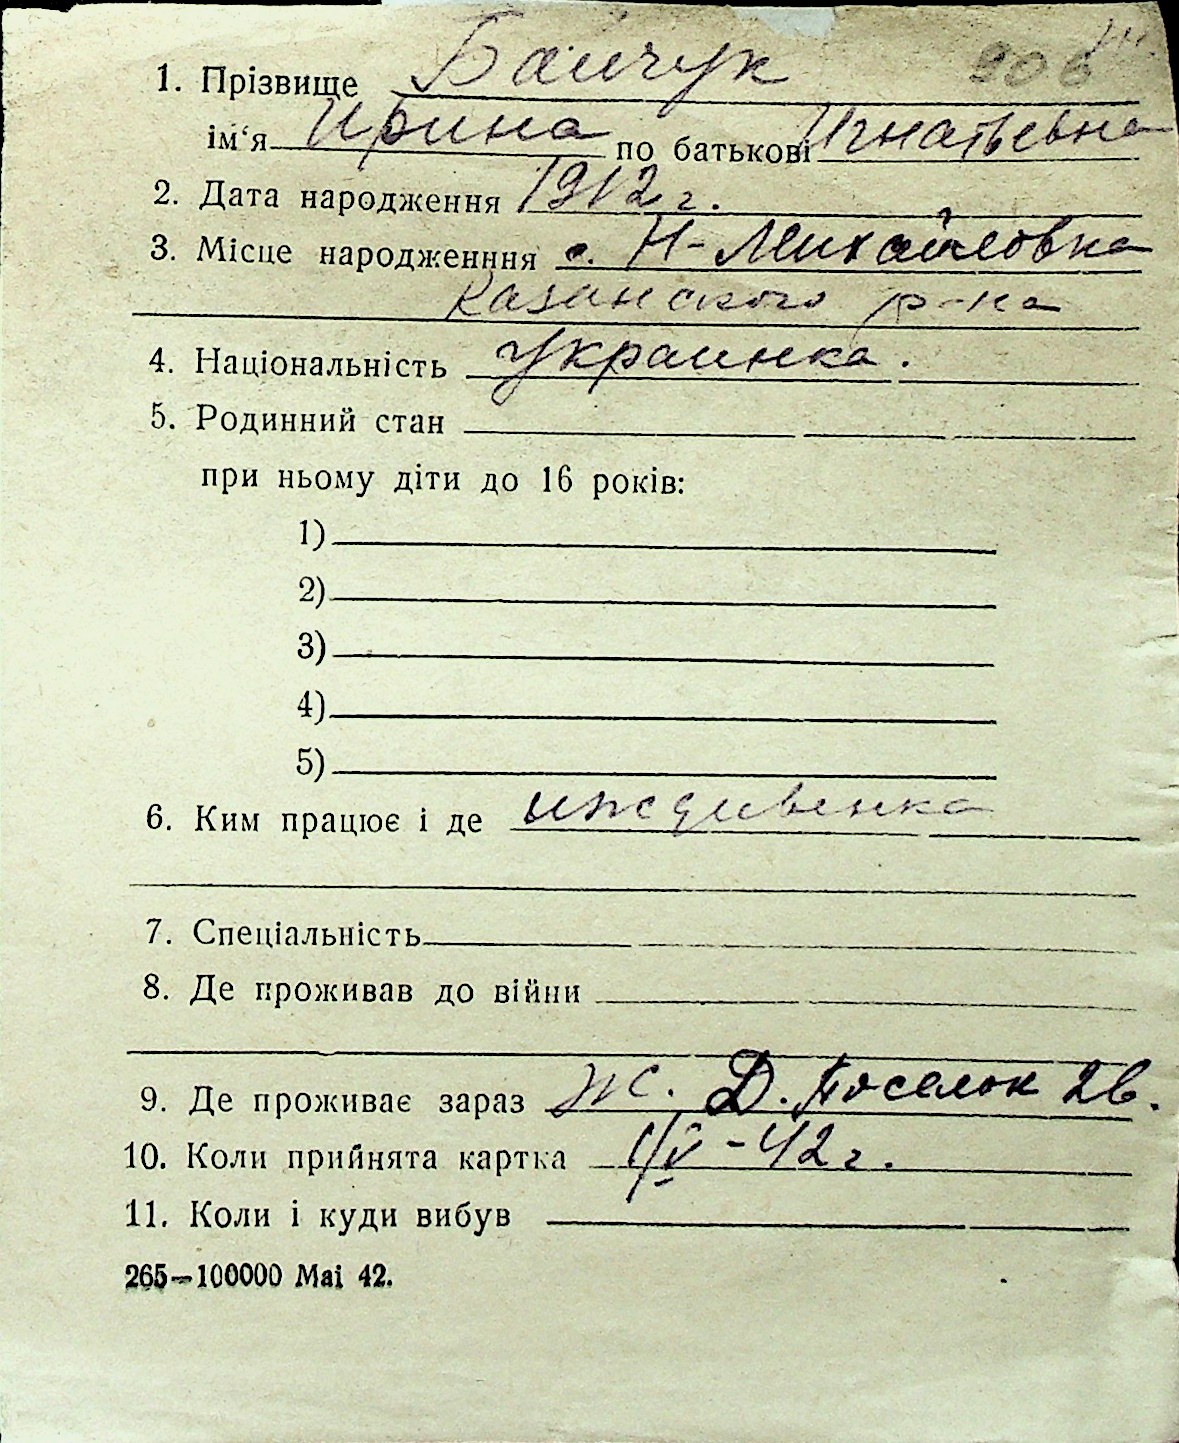 906
1. Прізвище Байчук
ім‘я Ирина по батькові Игнатьевна
2. Дата народження 1912 г.
3. Місце народженння с. Н-Михайловка
Казанского р-на
4. Національність Украинка.
5. Родинний стан
при ньому діти до 16 років:
1)
2)
3)
4)
5)
6. Ким працює і де иждивенка
7. Спеціальність
8. Де проживав до війни
9. Де проживає зараз Ж. Д. Поселок 2в.
10. Коли прийнята картка 1/V-42 г.
11. Коли і куди вибув
265—100000 Mai 42.